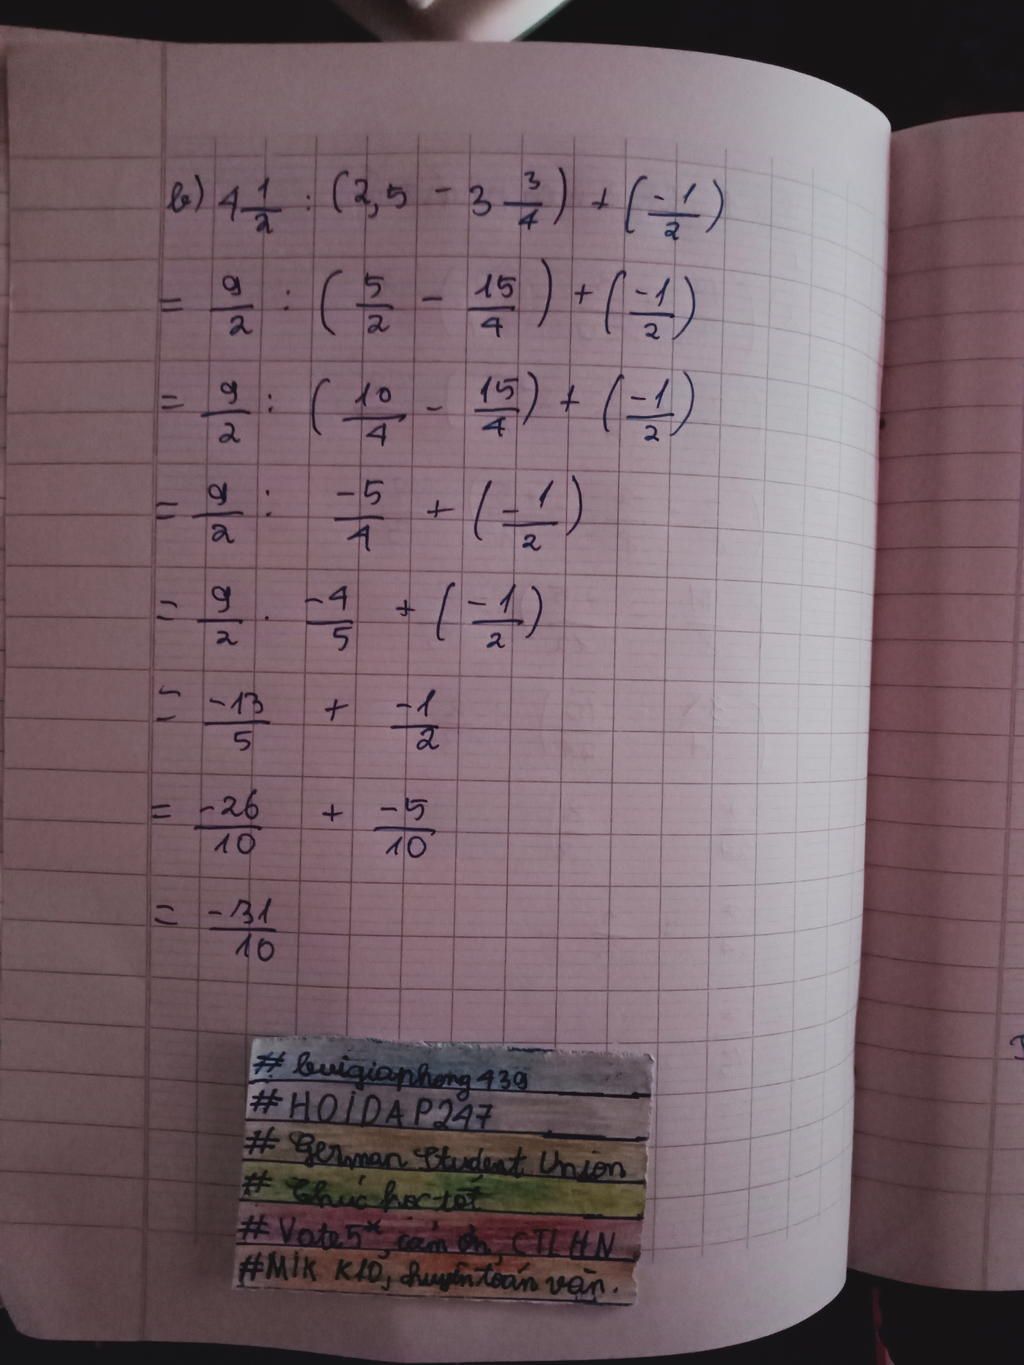 b) 4 1/2 : (2,5 - 3 3/4) + (-1/2)
= 9/2 : (5/2 - 15/4) + (-1/2)
= 9/2 : (10/4 - 15/4) + (-1/2)
= 9/2 : -5/4 + (-1/2)
= 9/2 . -4/5 + (-1/2)
= -13/5 + -1/2
= -26/10 + -5/10
= -31/10
# buigiaphong439
# HOIDAP247
# German Student Union
# Chúc học tốt
# Vote 5*, cảm ơn, CTLHN
# Mik K10, chuyên toán văn.